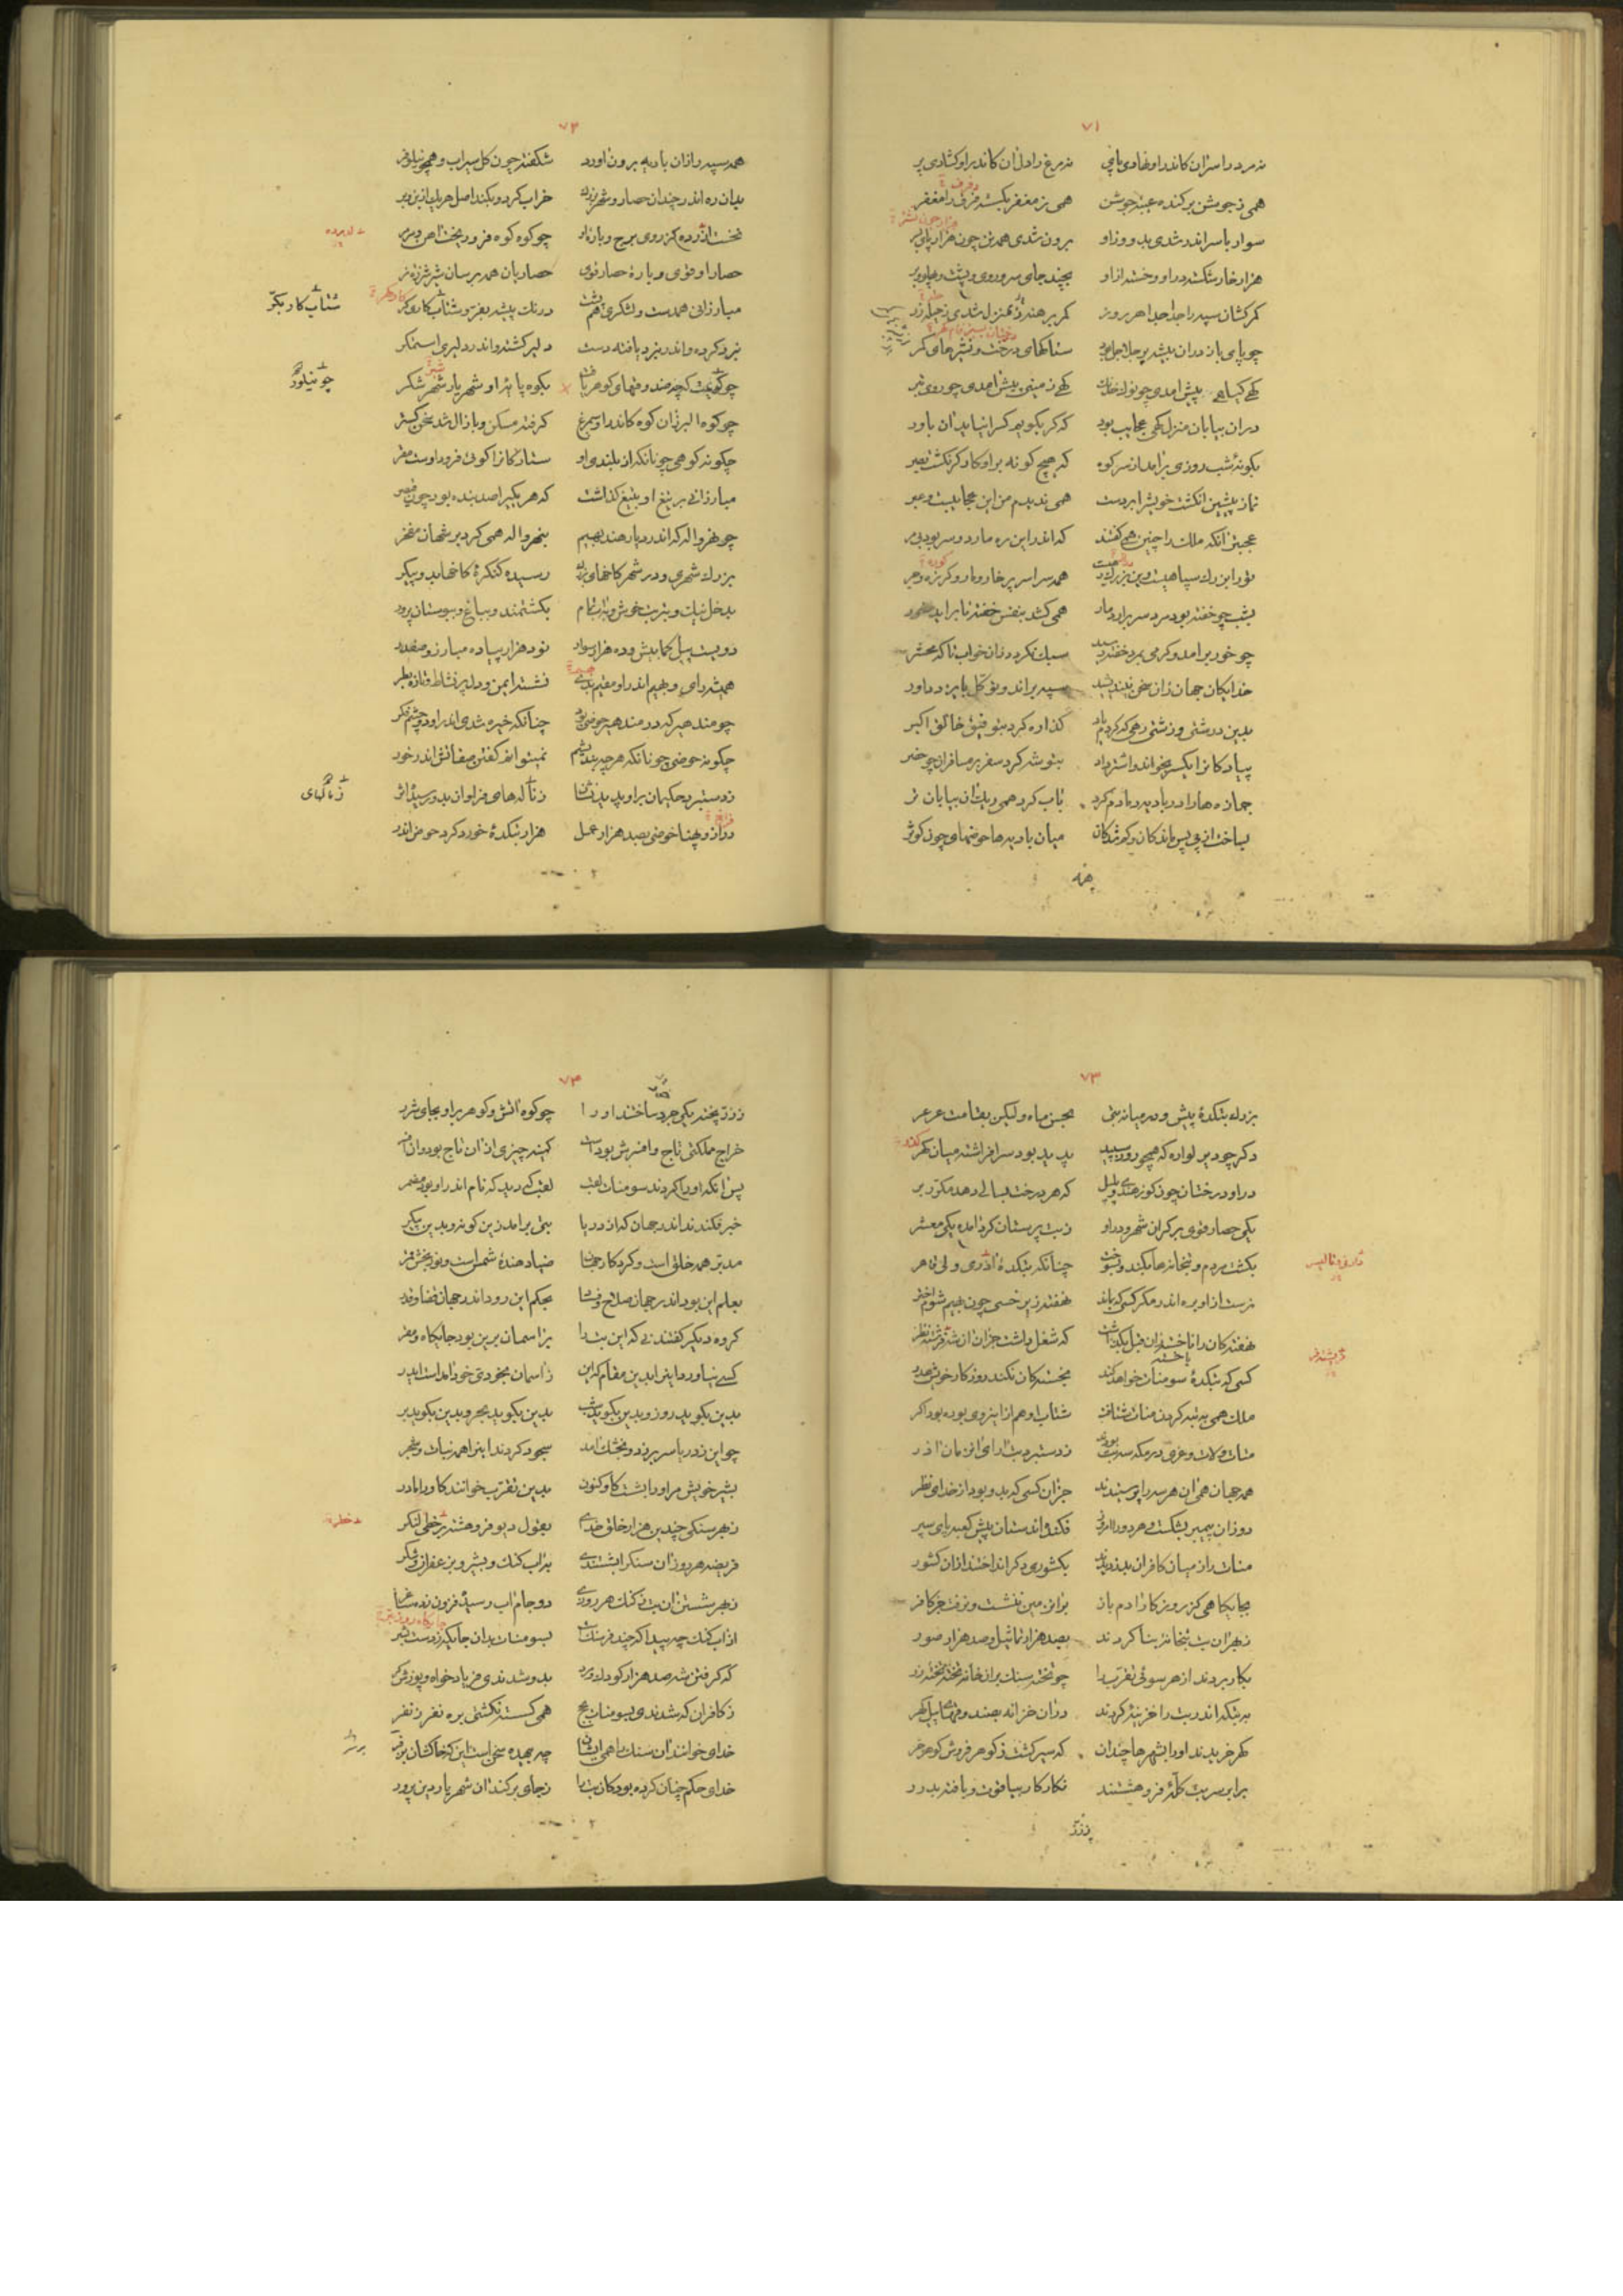 ۷۱
نه مرد را سر ازان کاندر او نهادی پای نه مرغ را دل ازان کاندر او کشادی پر
همی ز جوشن برکنده غیبهٔ جوشن همی ز مغفر بگسسته فرق را مغفر
سوار با سر اندر شدی بدو وز او برون شدی همه تن چون هزارپای بسر
هزار خار شکسته در او و خسته ازاو بچند جای سر و روی و پشت و پهلو و بر
کمرکشان سپه را جدا جدا هر روز کمر برهنه بمنزل شدی ز حلیهٔ زر
چو پای باز دران بیشه پر جلاجل بود ستاکهای درخت
کهی کیاهی پیش امدی چو نوک خدنک کهی زمینی پیش امدی چو روی تبر
دران بیابان منزلکهی عجایب بود که کر بکویم کس را نیاید ان باور
بکونهٔ شب روزی برامد از سر کوه که هیچ کونه براو کارکر نکشت بصر
نماز پیشین انکشت خویش را بر دست همی ندیدم من این عجایبست و عبر
عجبتر انکه ملک را چنین همی کفتند که اندر این ره مار دو سر بود بی مر
همه سراسر پر خار و مار
بشب چو خفته بود مرد سر برارد مار همی کشد بنفس خفته تا براید خور
چو خور برامد و کرمی بمرد خفته رسید سبک نکردد زان خواب تا که محشر
خدایکان جهان زان سخن نیندیشید سپه براند و توکل بایزد داور
بدین درشتی و زشتی رهی که کردم یاد کذاره کرد بتوفیق خالق اکبر
پیادکانرا یکسر بخواند و اشتر داد بتوشه کرد سفر بر مسافران چو حضر
جمازه‌ها را در بادیه دمادم کرد باب کرد همی ریک ان بیابان تر
بساخت از پی پس ماندکان و کم شدکان میان بادیه‌ها حوضهای چون کوثر
همه
۷۲
همه سپه را زان بادیه برون اورد شکفته چون کل سیراب و همچو نیلوفر
میان ره اندر چندان حصار و شهر بزرک خراب کرد و بکند اصل هر یک از بن و بر
نخست لدروه کز روی برج و باره او چو کوه کوه فرو ریخت اهن و مرمر
حصار او قوی و بارهٔ حصار قوی حصاریان همه برسان شیر شرزهٔ نر
مبارزانی همدست و لشکری هم پشت درنک پیشه بفر و شتاب کار
شتاب کار بکر
نبرد کرده و اندر نبرد یافته دست دلیر کشته و اندر دلیری استمکر
بکوه پایهٔ او شهریار شهرشکر
چو نیلور
چو کوه البرز ان کوه کاندر او سیمرغ کرفته مسکن و با زال شد سخن کستر
چکونه کوهی چونانکه از بلندی او ستارکانرا کوئی فرود اوست مقر
مبارزانی بر تیغ او بتیغ کذاشت که هر یکیرا صد بنده بود چون قیصر
چو نهرواله که اندر دیار هند بهیم بنهرواله همی کرد بر شهان مفخر
بزرک شهری و در شهر کاخهای بزرک رسیده کنکرهٔ کاخها بدو پیکر
بدخل نیک و بتربت خوش و باب تمام بکشتمند و بباغ و ببوستان برور
دویست پیل کمابیش و ده هزار سوار نود هزار پیاده مبارز و صفدر
همیشه رای بهیم اندر او مقیم بدی نشسته ایمن و دل پر نشاط و تازه بطر
چو مندهیر که در مندهیر حوضی بود چنانکه خیره شدی اندر او دو چشم فکر
چکونه حوضی چونانکه هرچه بندیشم نمیتوانم کفتن صفاتش اندر خور
ز دستبرد حکیمان براو پدید نشان ز ناله‌های فراوان بدو رسیده اثر
دراز و پهنا حوضی بصد هزار عمل هزار بتکدهٔ خورد کرد حوض اندر
۷۳
بزرک بتکدهٔ پیش و در میانه بتی بحسن ماه ولیکن بقامت عرعر
دکر چو دیولواره که همچو روز سپید پدید بود سرافراشته میان کذر
در او درختان چون کوز هندی و پلپل که هر درخت بسالی دهد مکرر بر
یکی حصار قوی بر کران شهر و در او ز بت پرستان کرد امده یکی معشر
بکشت مردم و بتخانه‌ها بکند و بسوخت چنانکه بتکدهٔ
نرست ازاو بره اندر مکر کسی که بماند نهفته زیر خسی چون بهیم شوم اختر
نهفتکان را ناجسته زان قبل بکذاشت که شغل داشت جزان ان شه فرشته نظر
کسی که بتکدهٔ سومنات خواهد کند بجستکان نکند روزکار خویش هدر
ملک همی به تبه کردن منات شتافت شتاب او هم از اینروی بوده بود اکر
منات و لات و عزی در مکه سه بت بودند ز دستبرد بت ارای ان زمان اذر
همه جهان همی ان هر سه را پرستیدند جز ان کسی که بدو بود از خدای نظر
دوزان پیمبر بشکست و هر دو را فکنده اندستان پیش کعبه پای سپر
منات را ز میان کافران بدزدیدند بکشوری دکر انداختند ازان کشور
بجایکاهی کز روزکار ادم باز بران زمین ننشست و نرفت جز کافر
ز بهر ان بت بتخانهٔ بنا کردند بصد هزار تماثیل و صد هزار صور
بکار بردند از هر سوئی تقرب را چو تخته سنک بران خانه تخته تخته زر
به بتکده اندر بت را خزینهٔ کردند دران خزانه بصندوقهای پیل کهر
کهر خریدند او را بشهرها چندان که سیر کشت ز کوهر فروش کوهر خر
برابر سر بت کلهٔ فرو هشتند نکار کار بیاقوت و بافته بدرر
ززر
۷۴
ز زر پخته یکی جرد ساختند او را چو کوه اتش و کوهر براو بجای شرر
خراج مملکتی تاج و افسرش بوده است کمینه چیزی ازان تاج بود وان افسر
پس انکه او را کردند سومنات لقب لقب که دید که نام اندر او بود مضمر
خبر فکندند اندر جهان که از دریا بتی برامد زین کونه و بدین پیکر
مدبر همه خلق است و کردکار جهان ضیا دهندهٔ شمس است و نوربخش قمر
بعلم این بود اندر جهان صلاح و فساد بحکم این رود اندر جهان قضا و قدر
کروه دیکر کفتند نی که این بت را بر اسمان برین بود جایکاه و مقر
کسی نیاورد اینرا بدین مقام که این ز اسمان بخودی خود امداست ایدر
بدین بکوید روز و بدین بکوید شب بدین بکوید بحر و بدین بکوید بر
چو این ز دریا سر بر زد و بخشک امد سجود کردند اینرا همه نبات و شجر
بشیر خویش مر او را بشست کاو و کنون بدین تقرب خوانند کاو را مادر
ز بهر سنکی چندین هزار خلق خدای بقول دیو فرو هشته
فریضه هر روز ان سنک را بشستندی باب کنک و بشیر و بزعفران و شکر
ز بهر شستن ان بت ز کنک هر روزی دو جام اب رسیدی فزون
از اب کنک چه پیدا که چند فرسنک است بسومنات بدان جایکه
که کرفتن خور صد هزار کودک و مرد بدو شدندی فریادخواه و پوزش‌کر
ز کافران که شدندی بسومنات بحج همی کسسته نکشتی بره نفر ز نفر
خدای خوانند ان سنک را همی ایشان چه بیهده سخن است این که خاکشان بر سر
خدای حکم چنان کرده بود کان بت را ز جای برکند ان شهریار دین پرور